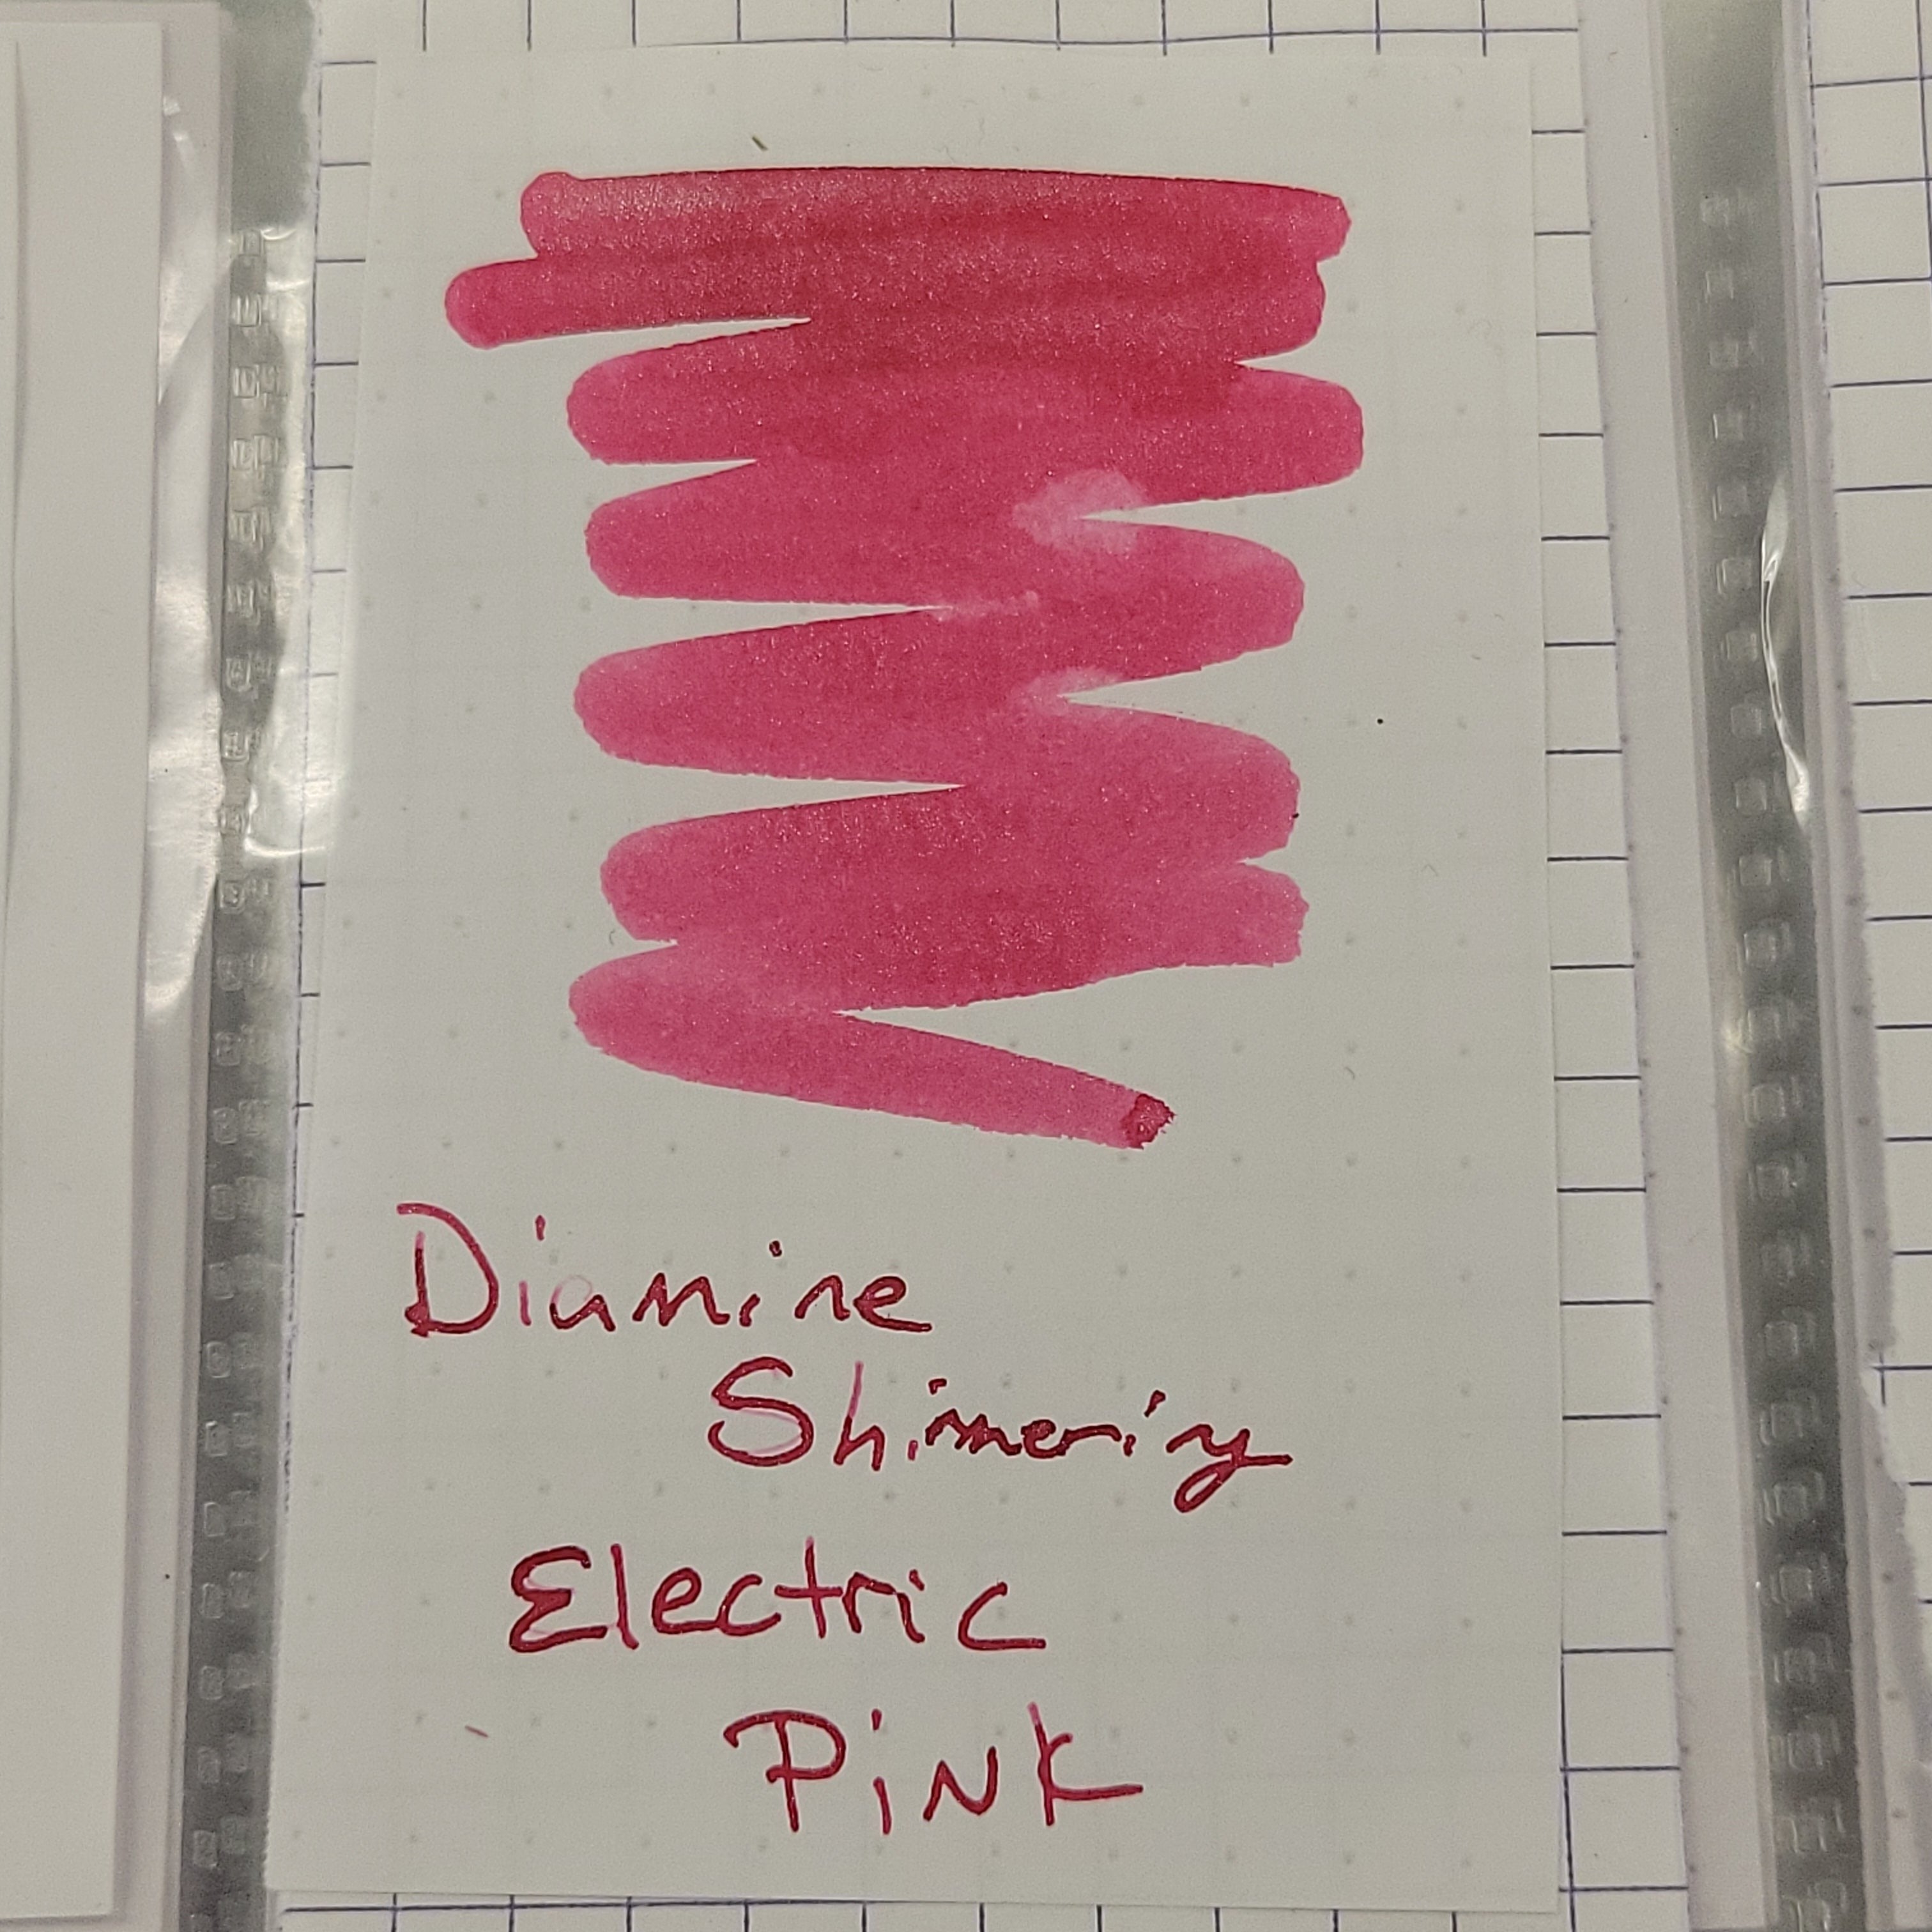 Diamine
Shimering
Electric
Pink